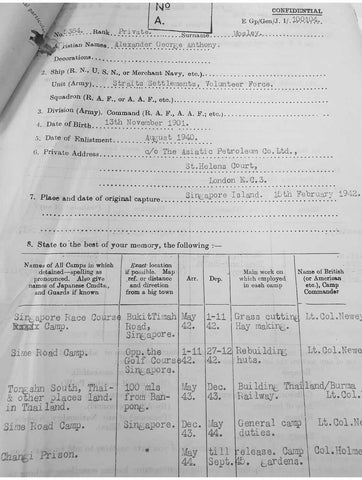 CONFIDENTIAL
No
A.
E Gp/Gen/J.1/. 100104.
No. 384. Rank, Private. Surname, Mosley.
Christian Names, Alexander George Anthony.
Decorations,
2. Ship (R. N., U. S. N., or Merchant Navy, etc.)
Unit (Army) Straits Settlements, Volunteer Force.
Squadron (R. A. F., or A. A. F., etc.)
3. Division (Army). Command (R. A. F., A. A. F.; etc.)
4. Date of Birth 13th November 1901.
5. Date of Enlistment August 1940.
6. Private Address c/o The Asiatic Petroleum Co.Ltd.,
St.Helens Court,
London E.C.3.
7. Place and date of original capture Singapore Island. February 1942.
8. State to the best of your memory, the following :—
Names of All Camps in which detained—spelling as pronounced. Also give names of Japanese Cmdts., and Guards if known
Exact location if possible. Map ref. or distance and direction from a big town
Arr.
Dep.
Main work on which employed in each camp
Name of British (or American etc.), Camp Commander
Singapore Race Course Camp.
BukitTimah Road, Singapore.
May 42.
1-11 42.
Grass cutting Hay making.
Lt.Col.Newe
Sime Road Camp.
Opp.the Golf Course Singapore.
1-11 42.
27-12 42.
Rebuilding huts.
Lt.Col.Newe
Tongahn South, Thai- & other places land. in Thailand.
100 mls from Ban- pong.
May 43.
Dec. 43.
Building Thailand/Burma Railway.
Lt.Col.
Sime Road Camp.
Singapore.
Dec. 43.
May 44.
General camp duties.
Lt.Col.N
Changi Prison.
May 44
till release. Sept.45.
Camp gardens.
Col.Holme